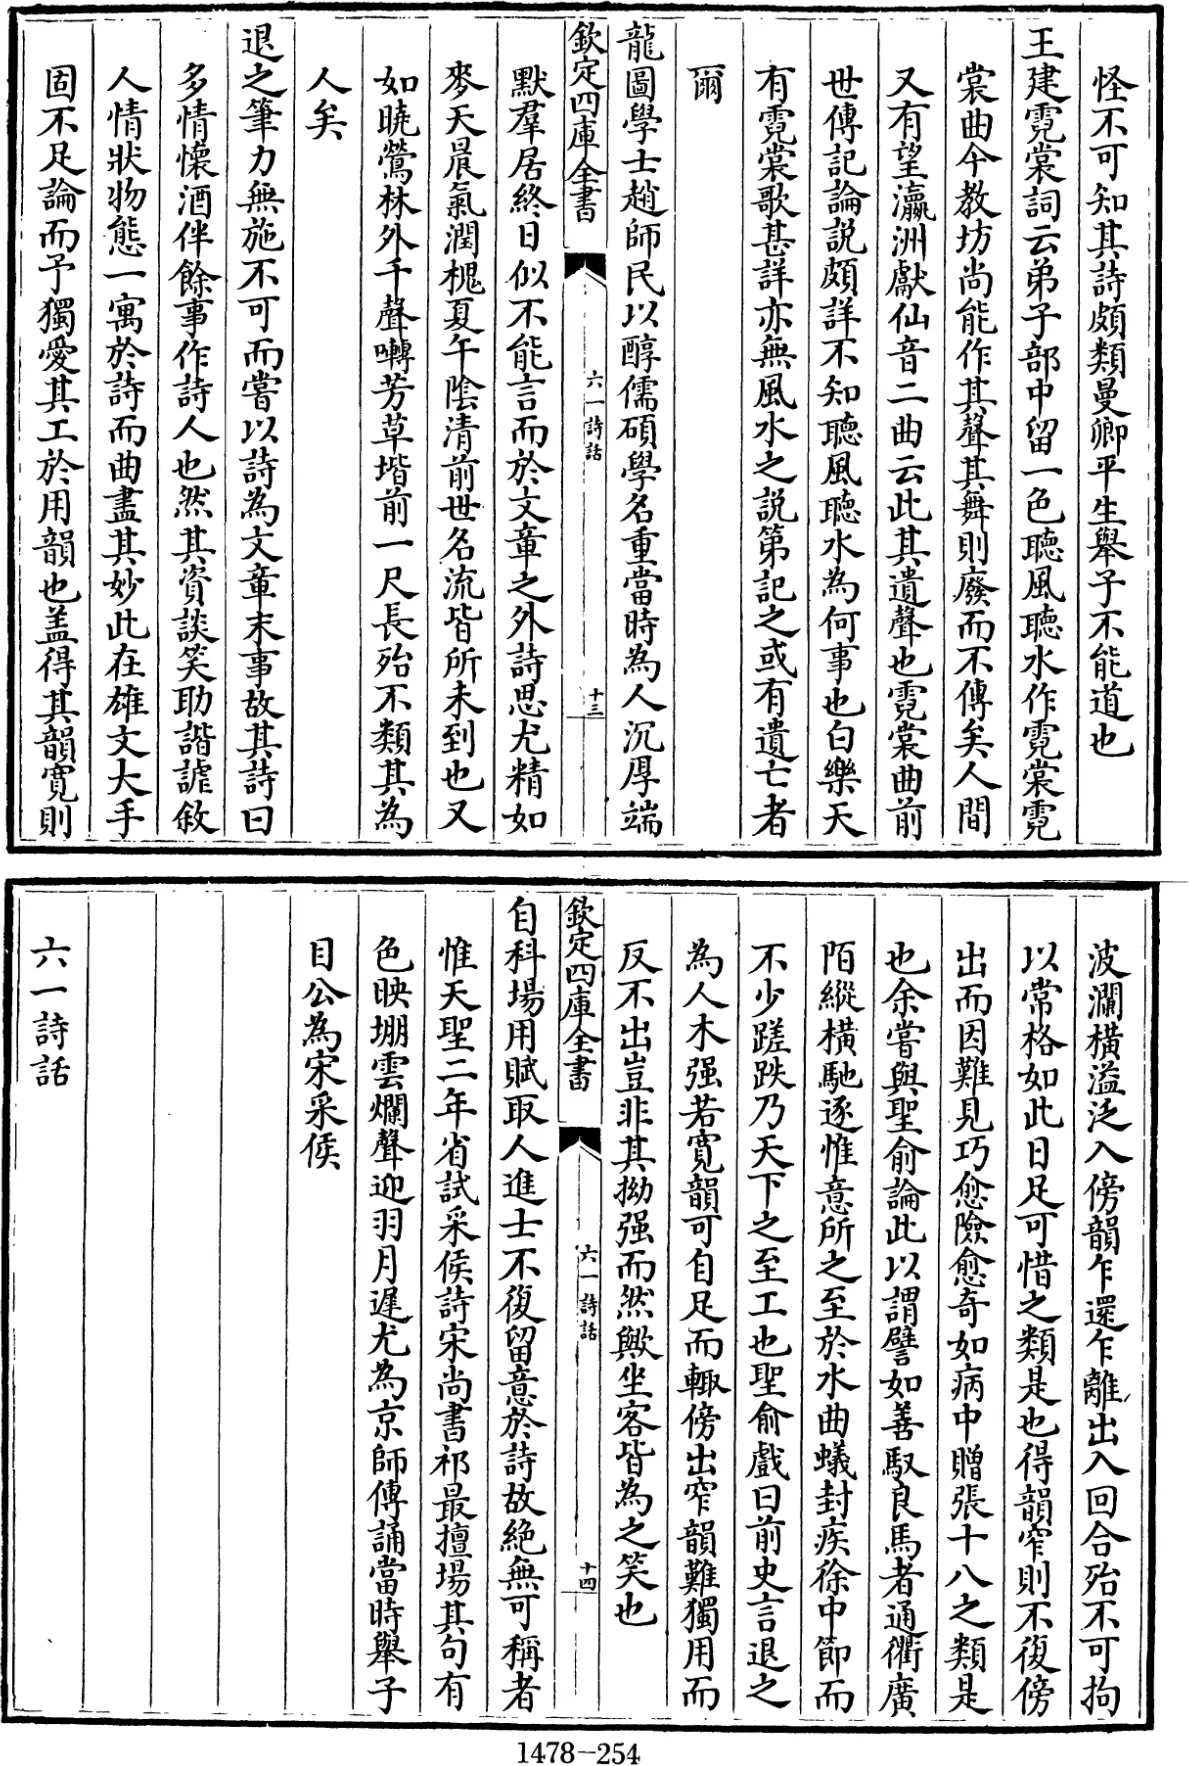 怪不可知其詩頗類曼卿平生舉子不能道也
王建霓裳詞云弟子部中留一色聽風聽水作霓裳霓
裳曲今教坊尚能作其聲其舞則廢而不傳矣人間
又有望瀛洲獻仙音二曲云此其遺聲也霓裳曲前
世傳記論說頗詳不知聽風聽水為何事也白樂天
有霓裳歌甚詳亦無風水之說第記之或有遺亡者
爾
龍圖學士趙師民以醇儒碩學名重當時為人沉厚端
欽定四庫全書
六一詩話
十三
默羣居終日似不能言而於文章之外詩思尤精如
麥天晨氣潤槐夏午陰清前世名流皆所未到也又
如曉鶯林外千聲囀芳草堦前一尺長殆不類其為
人矣
退之筆力無施不可而嘗以詩為文章末事故其詩曰
多情懷酒伴餘事作詩人也然其資談笑助諧謔敘
人情狀物態一寓於詩而曲盡其妙此在雄文大手
固不足論而予獨愛其工於用韻也盖得其韻寬則
波瀾橫溢泛入傍韻乍還乍離出入回合殆不可拘
以常格如此日足可惜之類是也得韻窄則不復傍
出而因難見巧愈險愈奇如病中贈張十八之類是
也余嘗與聖俞論此以謂譬如善馭良馬者通衢廣
陌縱橫馳逐惟意所之至於水曲蟻封疾徐中節而
不少蹉跌乃天下之至工也聖俞戲曰前史言退之
為人木强若寬韻可自足而輙傍出窄韻難獨用而
反不出豈非其拗强而然歟坐客皆為之笑也
欽定四庫全書
六一詩話
十四
自科場用賦取人進士不復留意於詩故絶無可稱者
惟天聖二年省試采侯詩宋尚書祁最擅場其句有
色映堋雲爛聲迎羽月遲尤為京師傳誦當時舉子
目公為宋采侯
六一詩話
1478-254